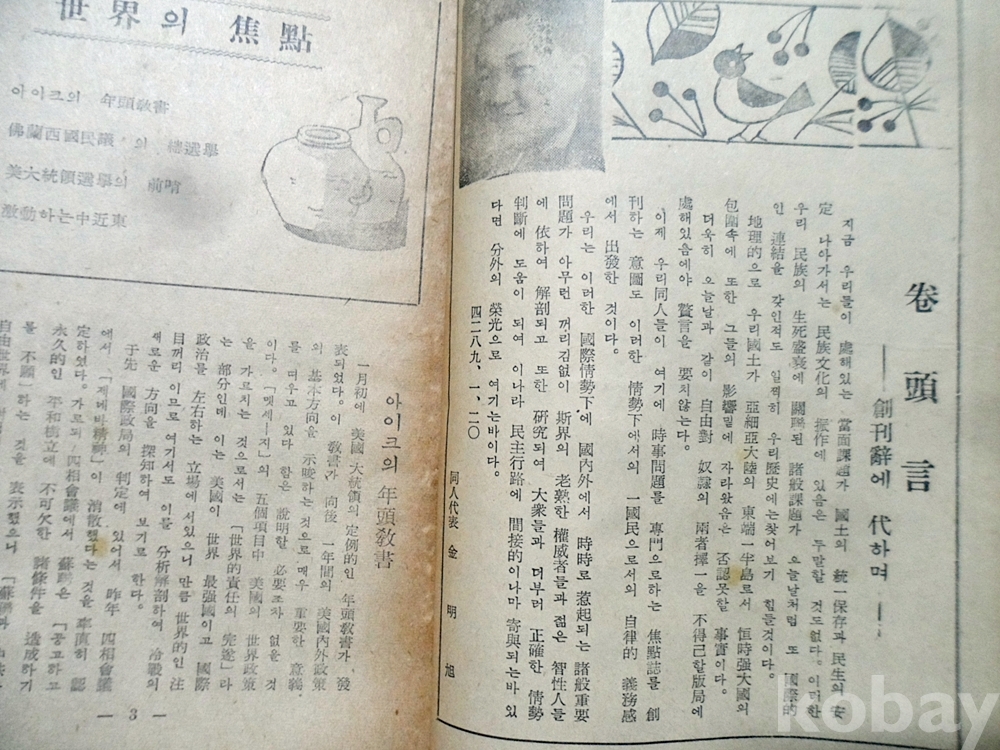 卷頭言
──創刊辭에 代하며──
지금 우리들이 處해있는 當面課題가 國土의 統一保存과 民生의 安
定 나아가서는 民族文化의 振作에 있음은 두말할 것도없다. 이러한
우리 民族의 生死盛衰에 關聯된 諸般課題가 오늘날처럼 또 國際的
인 連結을 갖인적도 일찍히 우리歷史에는찾어보기 힘들것이다.
地理的으로 우리國土가 亞細亞大陸의 東端一半島로서 恒時强大國의
包圍속에 또한 그들의 影響밑에 자라왔음은 否認못할 事實이다.
더욱히 오늘날과 같이 自由對 奴隷의 兩者擇一을 不得已할版局에
處해있음에야 贅言을 要치않는다.
이제 우리同人들이 여기에 時事問題를 專門으로하는 焦點誌를 創
刊하는 意圖도 이러한 情勢下에서의 一國民으로서의 自律的 義務感
에서 出發한 것이다.
우리는 이러한 國際情勢下에 國內外에서 時時로 惹起되는 諸般重要
問題가 아무런 꺼리김없이 斯界의 老熟한 權威者들과 젊은 智性人들
에 依하여 解剖되고 또한 硏究되여 大衆들과 더부러 正確한 情勢
判斷에 도움이 되여 이나라 民主行路에 間接的이나마 寄與되는바 있
다면 分外의 榮光으로 여기는바이다.
四二八九、一、二○
同人代表 金明旭
世界의 焦點
아이크의 年頭敎書
佛蘭西國民議 의 總選擧
美大統領選擧의 前哨
激動하는中近東
아이크의 年頭敎書
一月初에 美國大統領의 定例的인 年頭敎書가 發
表되었다. 이 敎書가 向後 一年間의 美國內外政策
의 基本方向을 示唆하는 것으로 매우 重要한 意義
를 띠우고 있다 함은 說明할 必要조차 없을 것
이다. 「멧세―지」의 五個項目中 美國의 世界政策
을 가르치는 것으로서는 「世界的責任의 完遂」라
는 部分인데 이는 美國이 世界 最强國이고 國際
政治를 左右하는 立場에 서있으니 만큼 世界的인 注
目꺼리이므로 여기서도 이를 分析解剖하여 冷戰의
새로운 方向을 探知하여 보기로 한다.
于先 國際政局의 判定에 있어서 昨年 四相會議
에서 「제네바精神」이 消散했다는 것을 率直히 認
定하였다. 가로되 四相會議에서 蘇聯은 「공고하고
永久的인 平和樹立에 不可欠한 諸條件을 造成하기
를 不願」하는 것을 表示했으니 「蘇聯과
自由世界에
― 3 ―
kobay